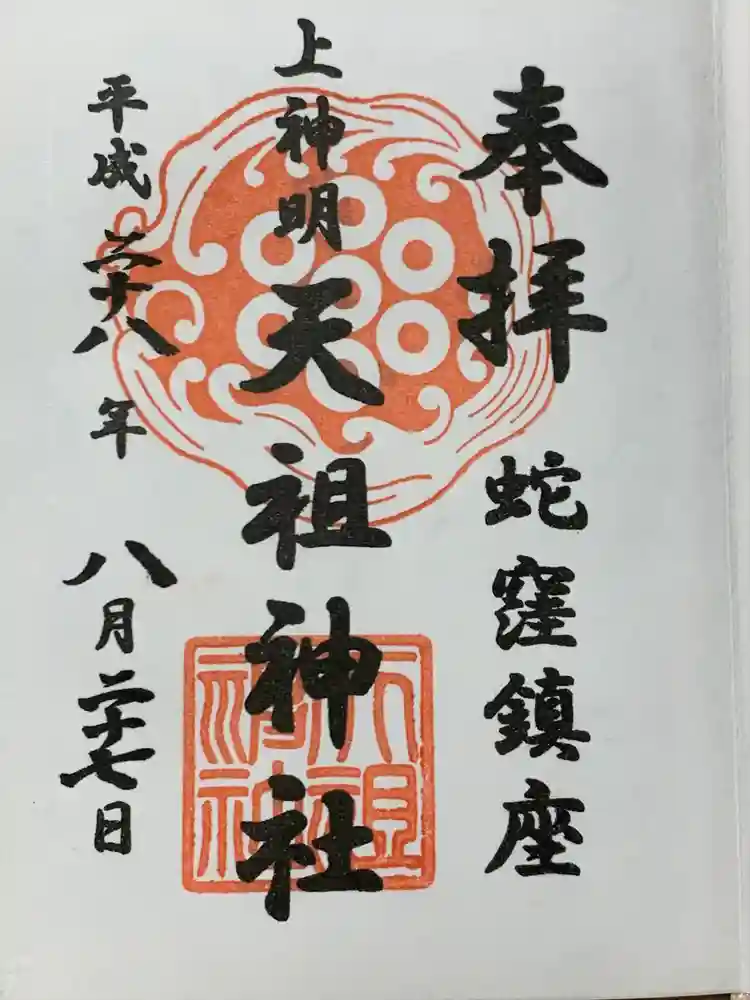 奉拝 蛇窪鎮座
上神明天祖神社
平成二十八年 八月二十七日